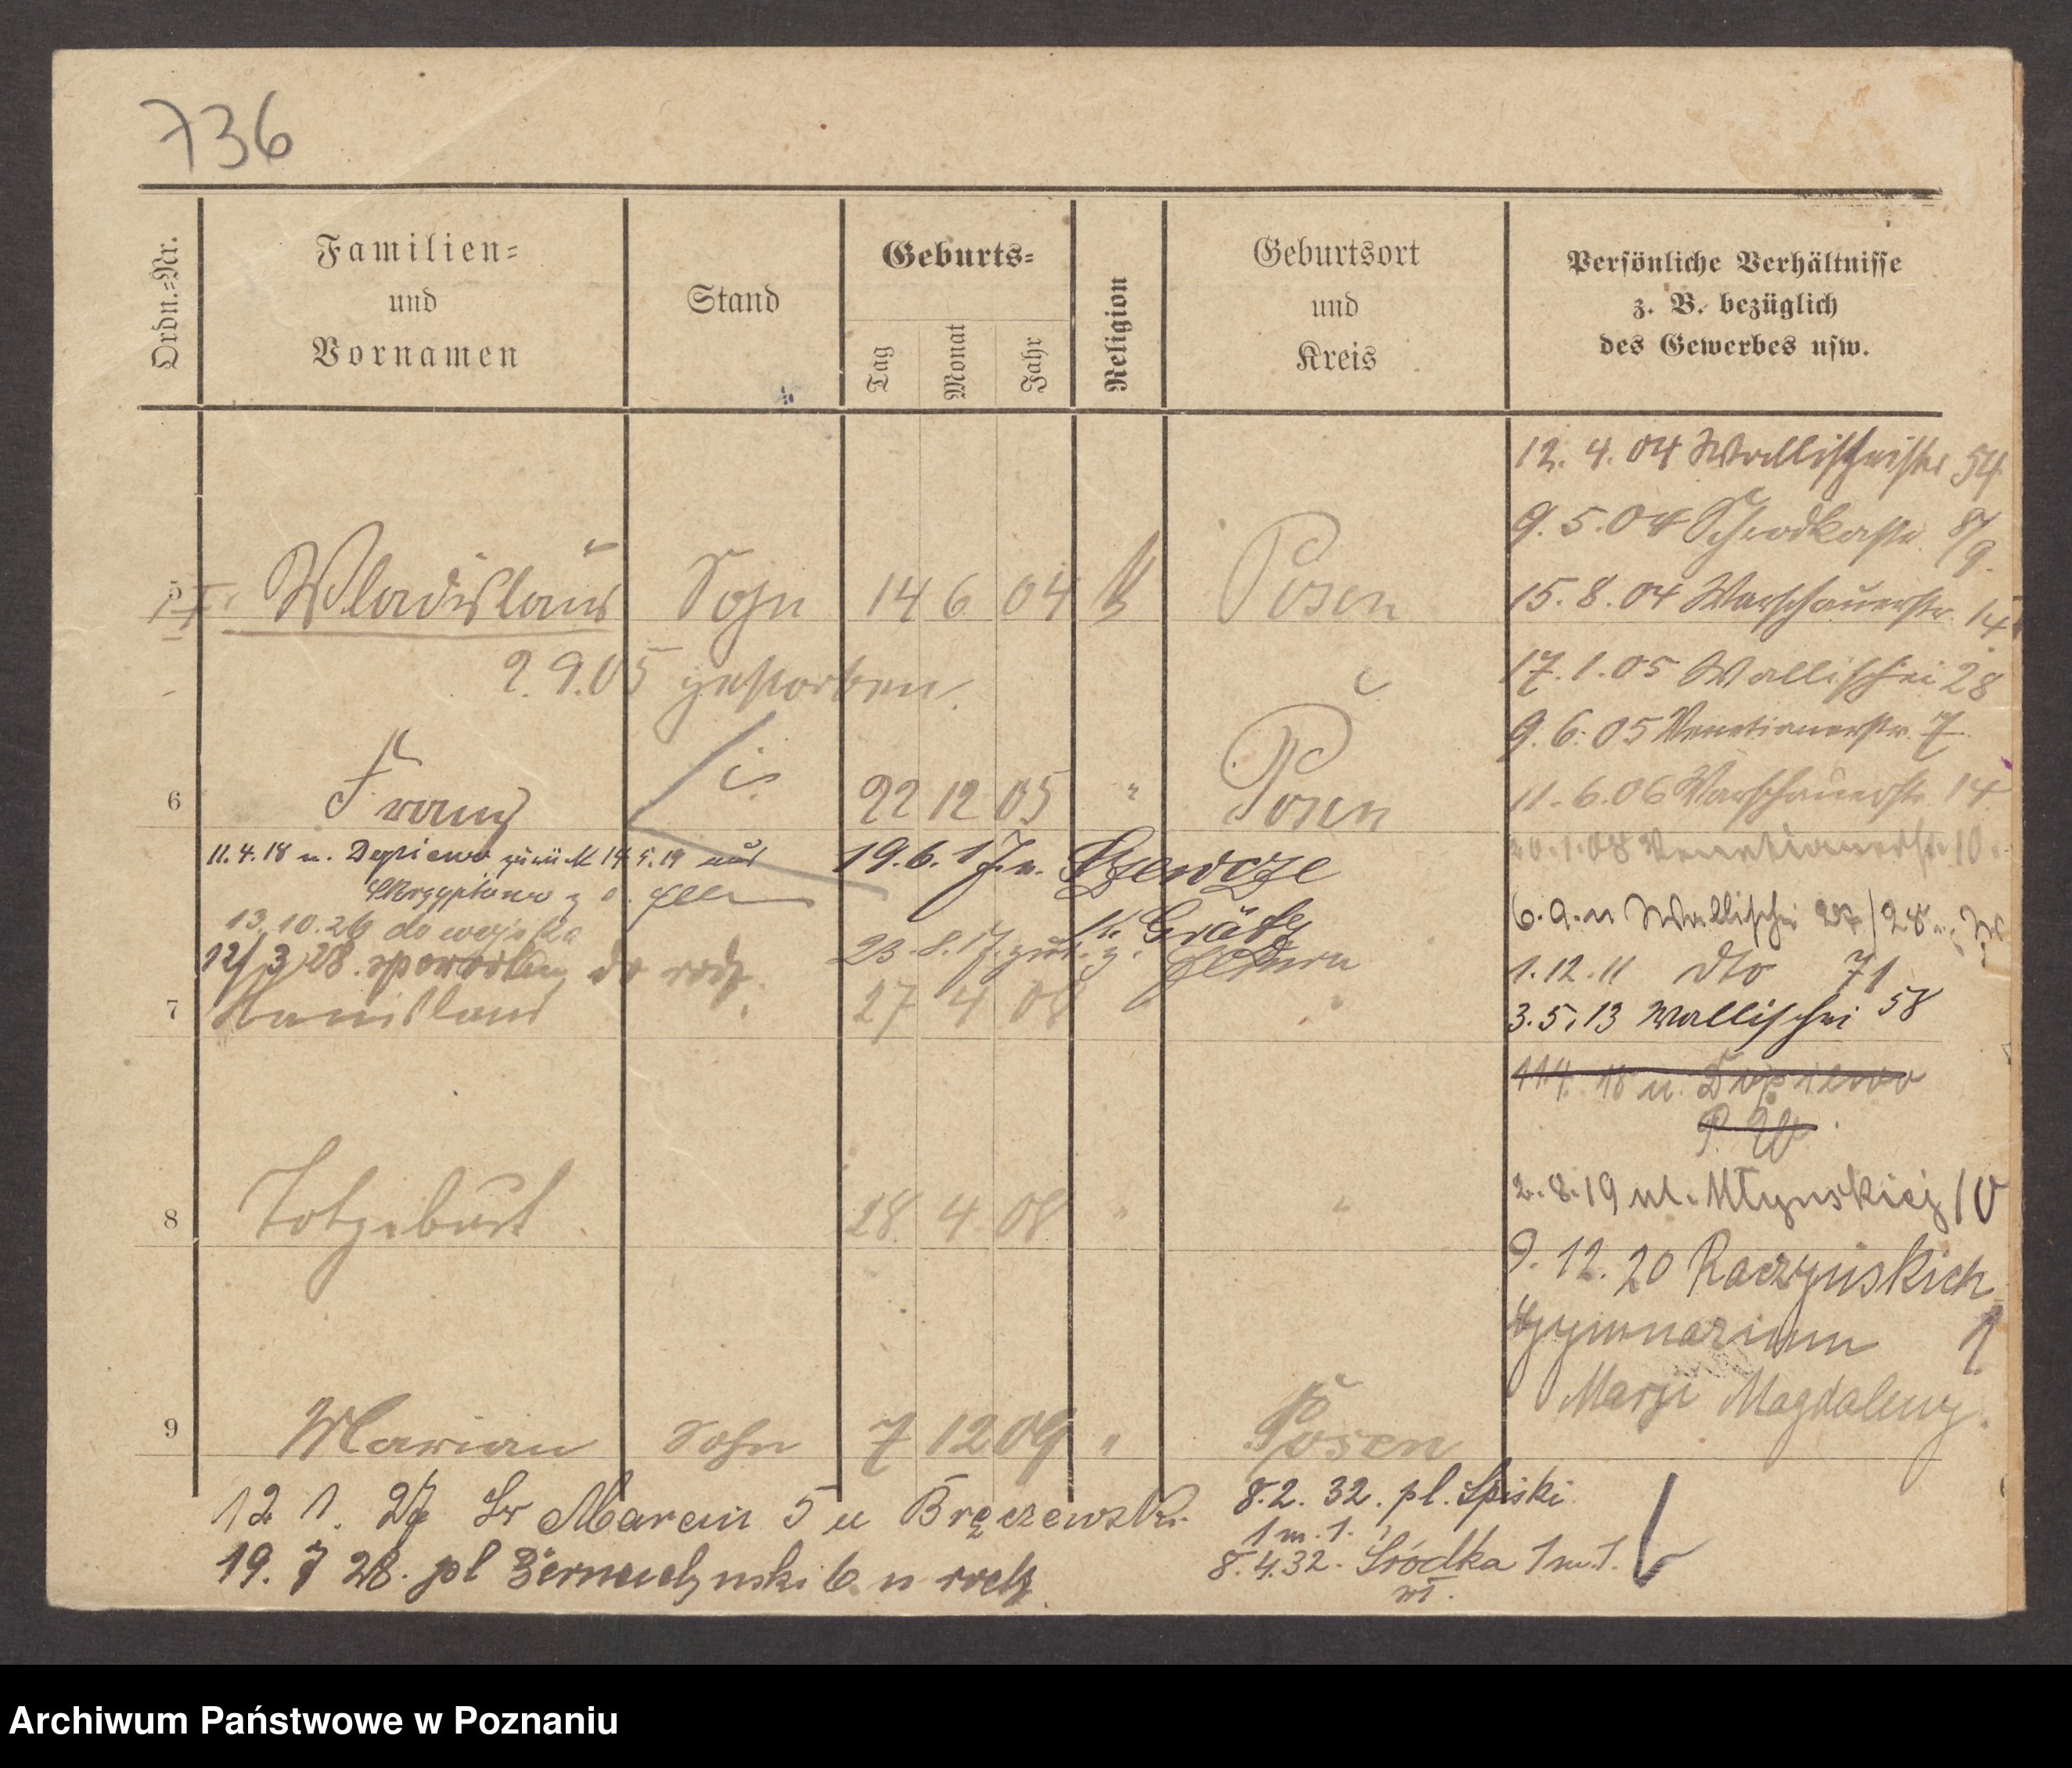 736
Ordn.=Nr.
Familien=
und
Vornamen
Stand
Geburts=
Tag
Monat
Jahr
Religion
Geburtsort
und
Kreis
Persönliche Verhältnisse
z. B. bezüglich
des Gewerbes usw.
5 Wladislaus Sohn 14 6 04 Posen
2.9.05 gestorben.
6 Franz 22 12 05 " Posen
11.4.18 n. Dopiewo zurück 14.5.19 aus
19.6.17 n. Szewcze
K. Grätz
13.10.26 do wojska
23.8.17 zur. z. Eltern
12/3 28. do rodz.
7 Stanislaus 27 4 08 "
8 Totgeburt 28. 4. 08 " "
9 Marian Sohn 7 12 09 " Posen
12. 4. 04 Wallischeistr 54
9. 5. 04 Schrodkastr. 8/9.
15. 8. 04 Warschauerstr. 14
17. 1. 05 Wallischei 28
9. 6. 05 Venetianerstr. 7
11. 6. 06 Warschauerstr. 14
20. 1. 08 Venetianerstr. 10.
6. 9. 11 Wallischei 27/28
1. 12. 11 dto 71
3. 5. 13 Wallischei 58
11.4. 18 n. Dopiewo
2. 8. 19 ul. Młyńskiej 10
9. 12. 20 Raczyńskich
Gymnazium 1
Marji Magdaleny.
12 1. 27 Sw Marcin 5 u
19. 7 28. pl 6 u rodz.
8. 2. 32. pl. Spiski
1 m. 1.
8. 4. 32. Śródka 1 m. 1.
Archiwum Państwowe w Poznaniu